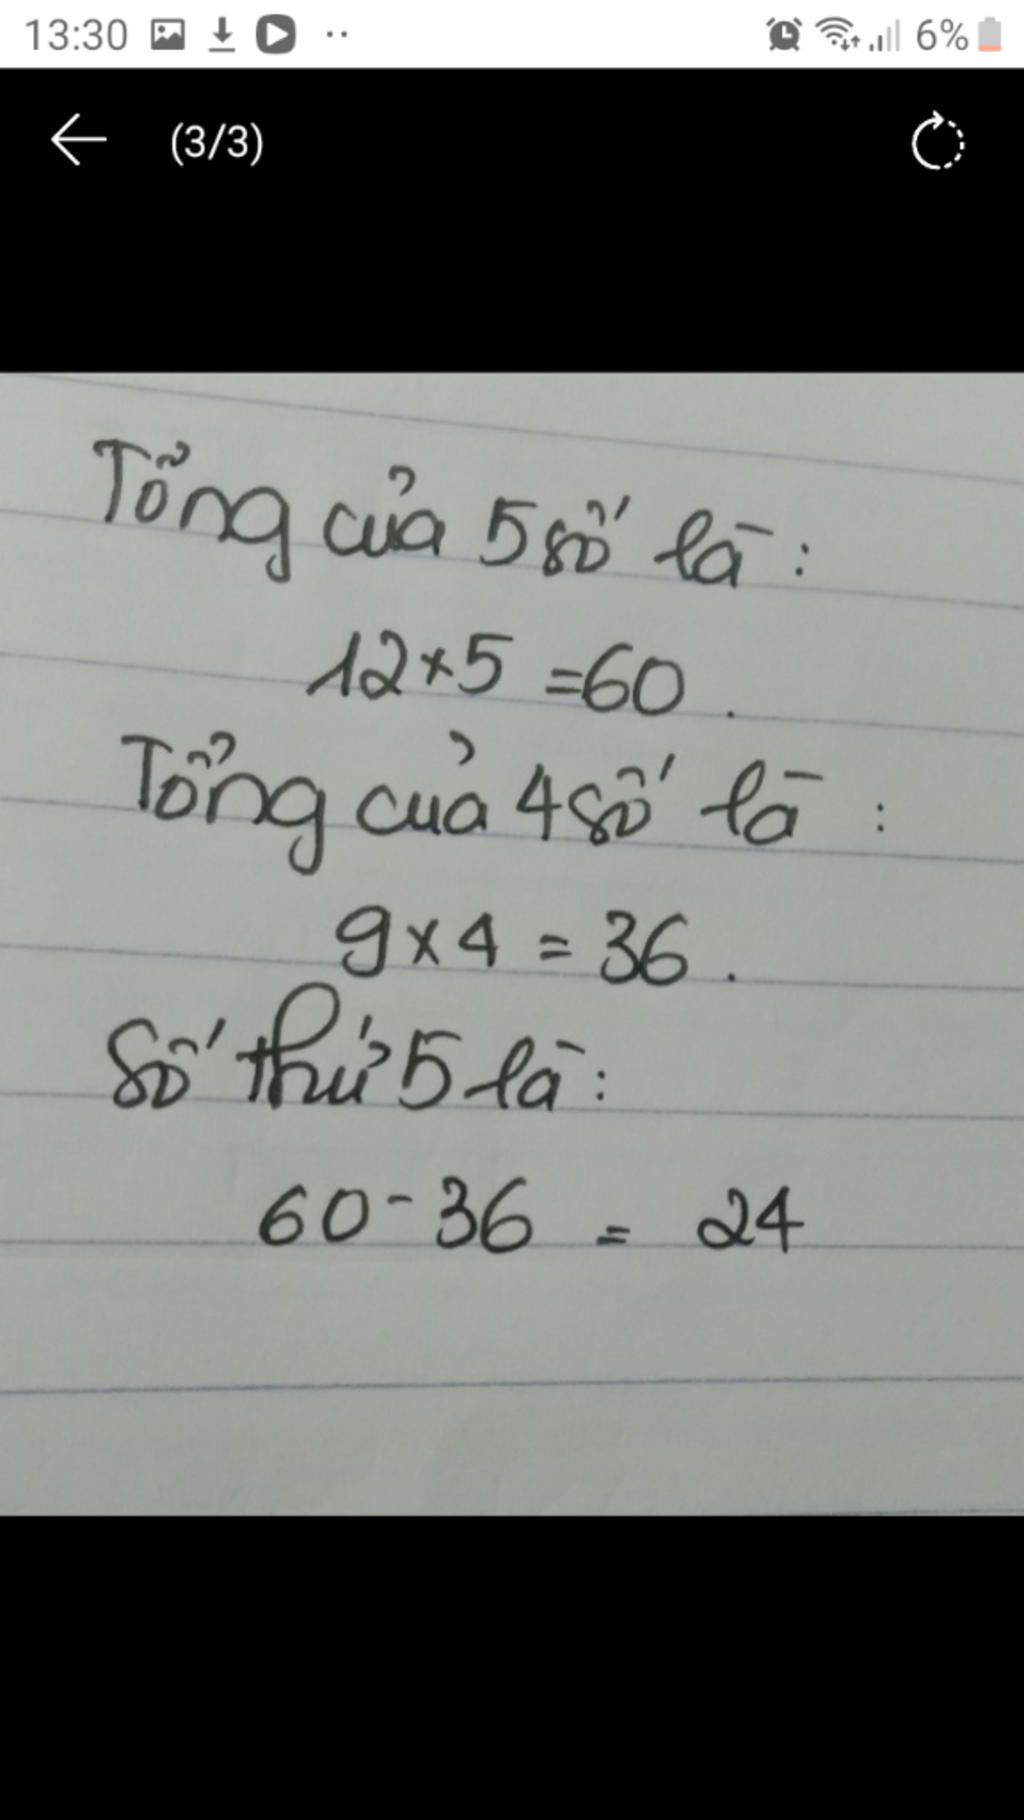 13:30 6%
(3/3)
Tổng của 5 số là:
12×5 =60.
Tổng của 4 số là :
9×4 = 36.
Số thứ 5 là:
60-36 = 24